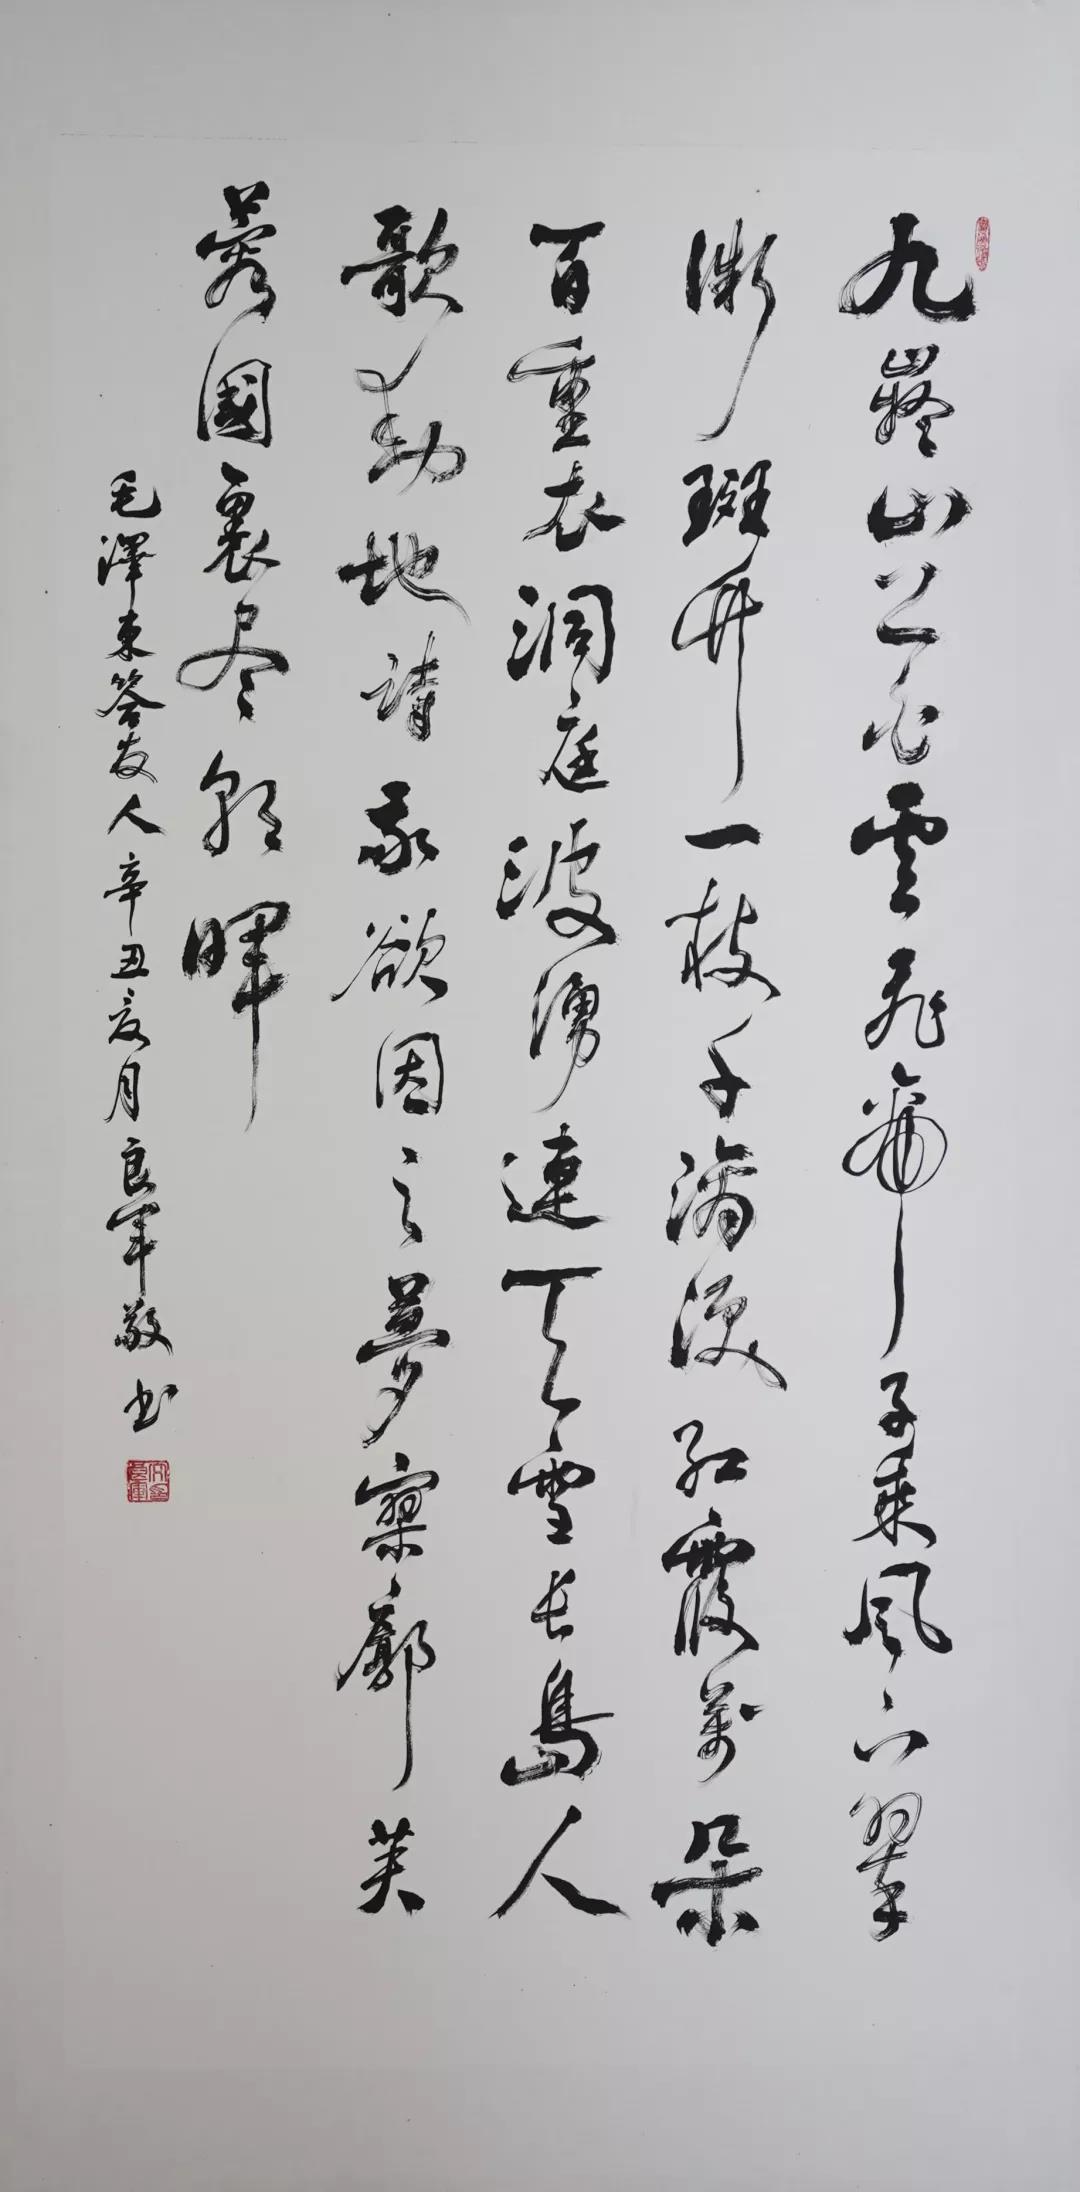 九嶷山上白雲飛帝子乘风下翠
微斑竹一枝千滴淚紅霞萬朵
百重衣洞庭波湧連天雪長島人
歌動地詩我欲因之夢寥廓芙
蓉國裏尽朝暉
毛澤東答友人辛丑夏月良軍敬书